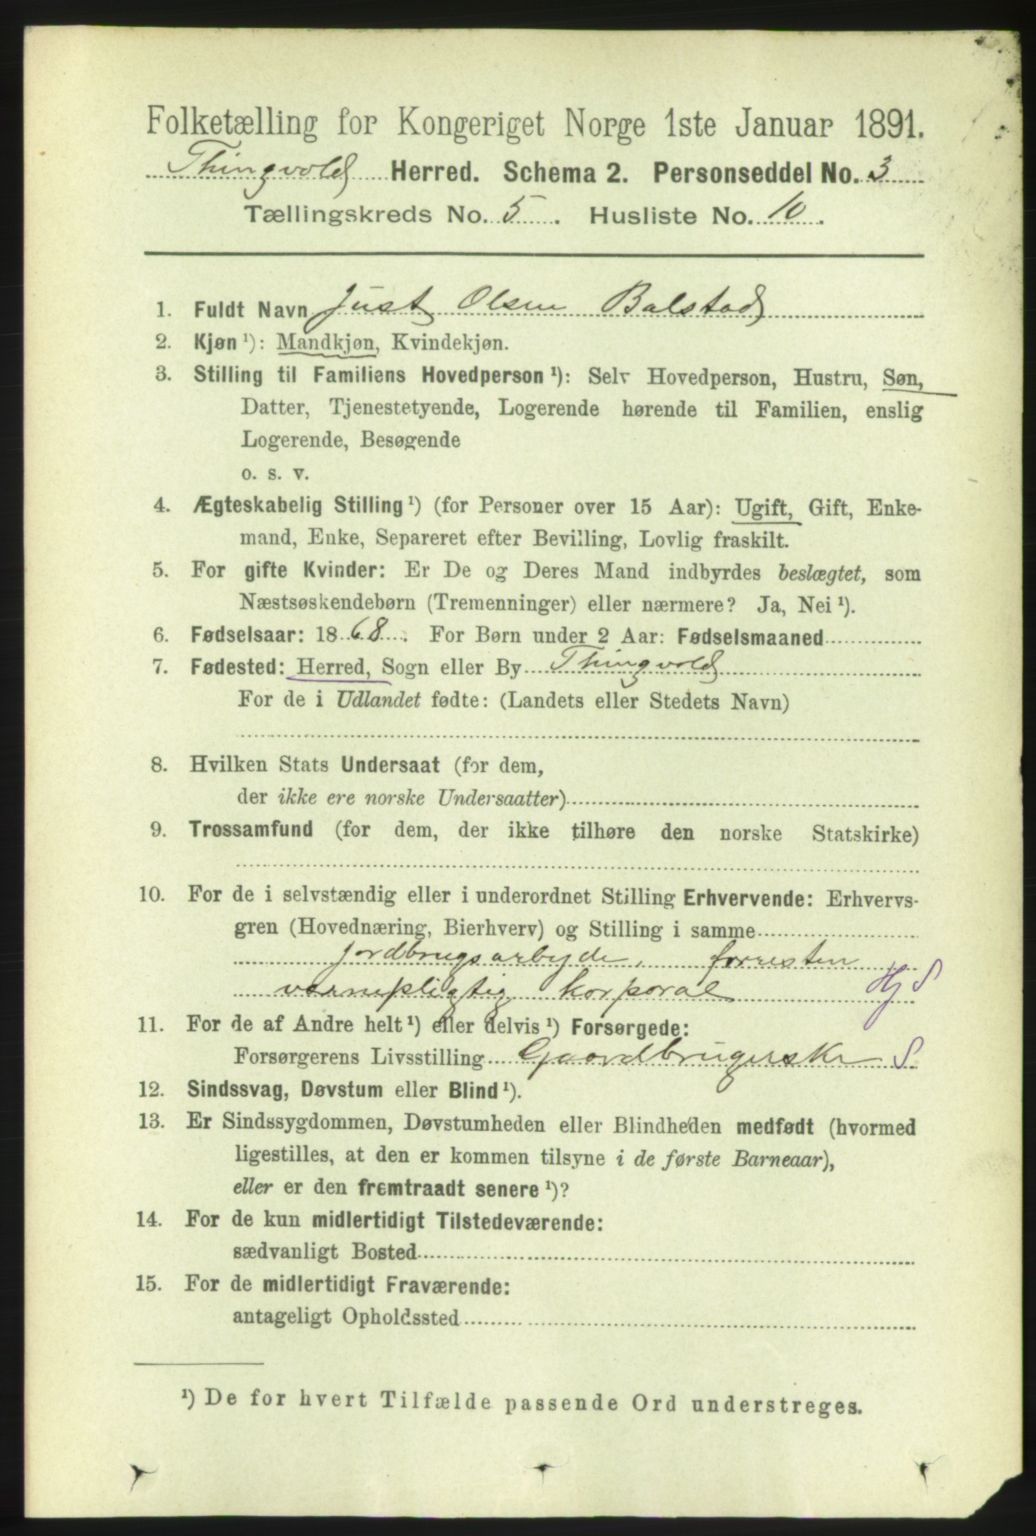 Folketælling for Kongeriget Norge 1ste Januar 1891.
Thingvold Herred. Schema 2. Personseddel No. 3
Tællingskreds No. 5. Husliste No. 10.
1. Fuldt Navn Just Olsen Balstad
2. Kjøn ¹): Mandkjøn, Kvindekjøn.
3. Stilling til Familiens Hovedperson ¹): Selv Hovedperson, Hustru, Søn,
Datter, Tjenestetyende, Logerende hørende til Familien, enslig
Logerende, Besøgende
o. s. v.
4. Ægteskabelig Stilling ¹) (for Personer over 15 Aar): Ugift, Gift, Enke-
mand, Enke, Separeret efter Bevilling, Lovlig fraskilt.
5. For gifte Kvinder: Er De og Deres Mand indbyrdes beslægtet, som
Næstsøskendebørn (Tremenninger) eller nærmere? Ja, Nei ¹).
6. Fødselsaar: 1868. For Børn under 2 Aar: Fødselsmaaned
7. Fødested: Herred, Sogn eller By Thingvold
For de i Udlandet fødte: (Landets eller Stedets Navn)
8. Hvilken Stats Undersaat (for dem,
der ikke ere norske Undersaatter)
9. Trossamfund (for dem, der ikke tilhøre den norske Statskirke)
10. For de i selvstændig eller i underordnet Stilling Erhvervende: Erhvervs-
gren (Hovednæring, Bierhverv) og Stilling i samme
jordbrugsarbyde, forresten
værnepligtig korporal Hj S
11. For de af Andre helt ¹) eller delvis ¹) Forsørgede:
Forsørgerens Livsstilling Gaardbrugerske S
12. Sindssvag, Døvstum eller Blind ¹).
13. Er Sindssygdommen, Døvstumheden eller Blindheden medfødt (hvormed
ligestilles, at den er kommen tilsyne i de første Barneaar),
eller er den fremtraadt senere ¹)?
14. For de kun midlertidigt Tilstedeværende:
sædvanligt Bosted
15. For de midlertidigt Fraværende:
antageligt Opholdssted
¹) De for hvert Tilfælde passende Ord understreges.